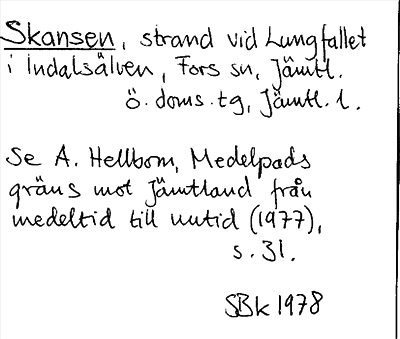 Skansen, strand vid Lungfallet
i Indalsälven, Fors sn, Jämtl.
ö. doms.tg, Jämtl. l.
Se A. Hellbom, Medelpads
gräns mot Jämtland från
medeltid till nutid (1977),
s. 31.
SBk 1978